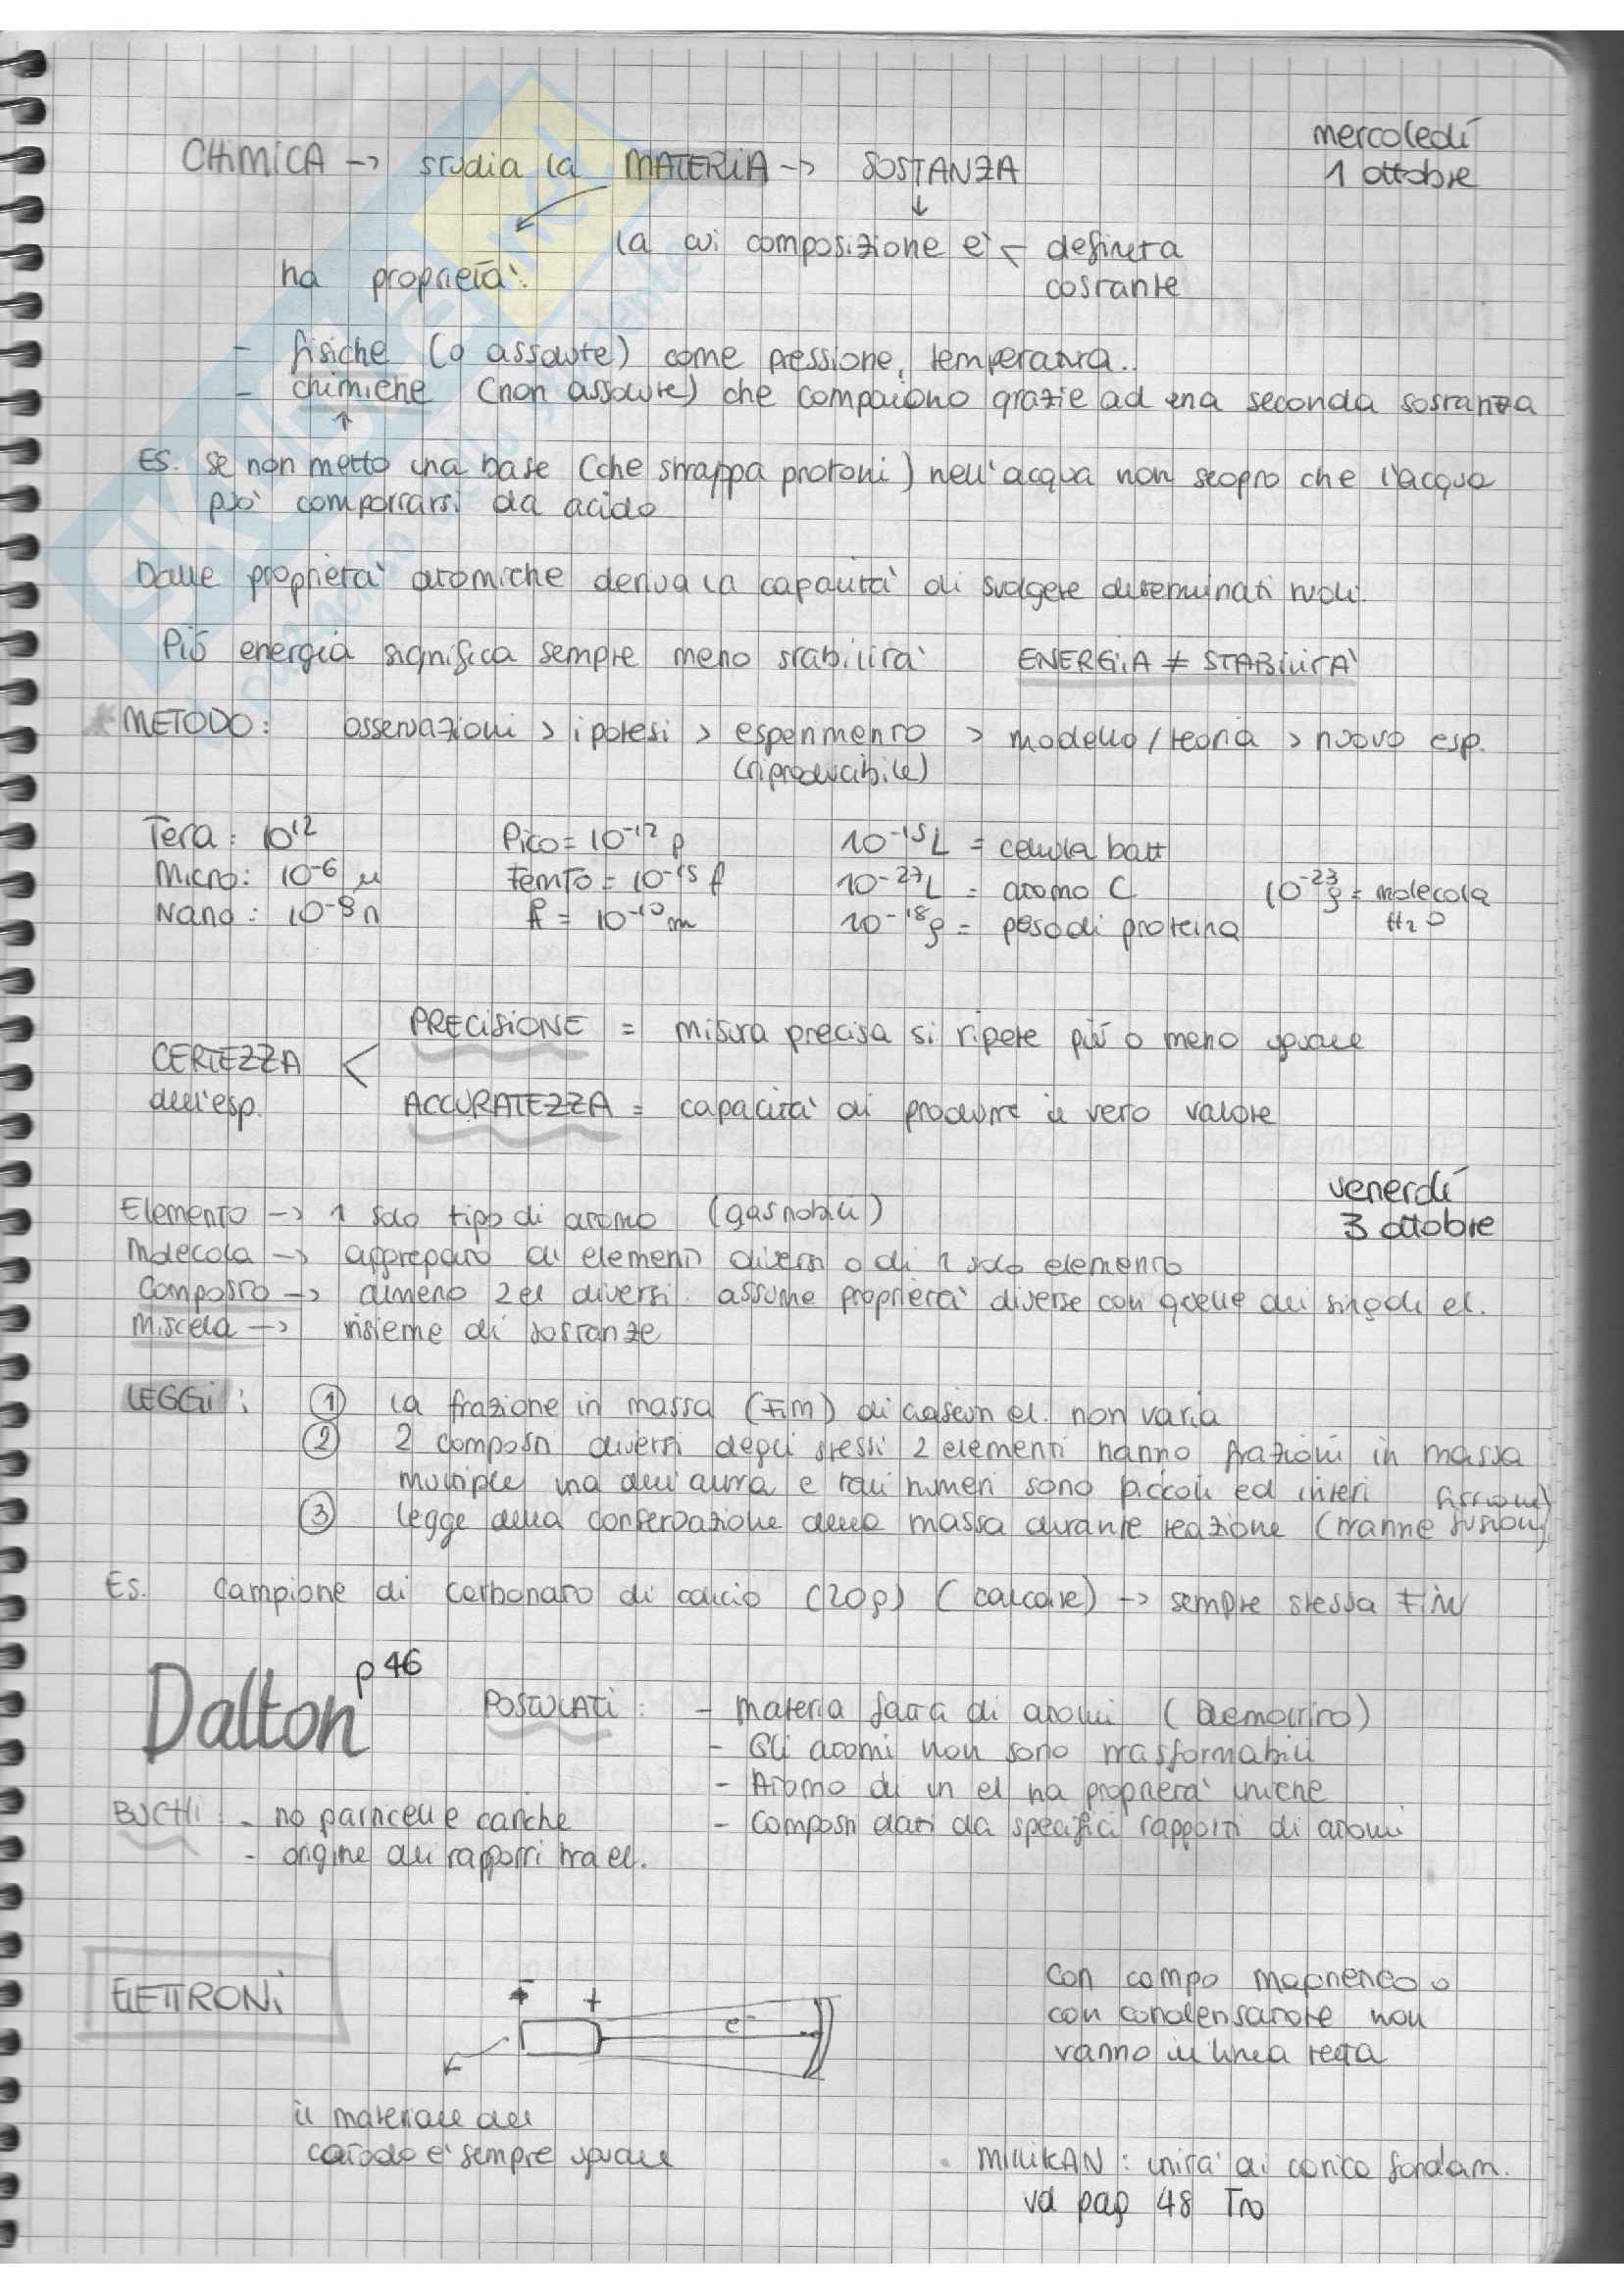 mercoledí
1 ottobre
CHIMICA -> studia la MATERIA -> SOSTANZA
↓
la cui composizione e' < definita
costante
ha proprietà:
- fisiche (o assolute) come pressione, temperatura..
- chimiche (non assolute) che compaiono grazie ad una seconda sostanza
↑
ES. se non metto una base (che strappa protoni) nell'acqua non scopro che l'acqua
può comportarsi da acido
Dalle proprietà atomiche deriva la capacità di svolgere determinati ruoli.
Più energia significa sempre meno stabilità ENERGIA ≠ STABILITA'
* METODO: osservazioni > ipotesi > esperimento > modello/teoria > nuovo esp.
(riproducibile)
Tera: 10^12 Pico = 10^-12 p 10^-15 L = cellula batt
Micro: 10^-6 μ Femto = 10^-15 f 10^-27 L = atomo C 10^-23 g = molecola
Nano: 10^-9 n Å = 10^-10 m 10^-18 g = peso di proteina H2O
PRECISIONE = misura precisa si ripete più o meno uguale
CERTEZZA <
dell'esp.
ACCURATEZZA = capacità di produrre il vero valore
venerdí
3 ottobre
Elemento -> 1 solo tipo di atomo (gas nobili)
Molecola -> aggregato di elementi diversi o di 1 solo elemento
Composto -> almeno 2 el diversi. assume proprietà diverse con quelle dei singoli el.
Miscela -> insieme di sostanze
LEGGI: ① la frazione in massa (FiM) di ciascun el. non varia
② 2 composti diversi degli stessi 2 elementi hanno frazioni in massa
multiple una dell'altra e tali numeri sono piccoli ed interi
③ legge della conservazione della massa durante reazione (tranne fusioni fissioni)
Es. Campione di carbonato di calcio (20g) (calcare) -> sempre stessa FiM
Dalton p 46
POSTULATI: - materia fatta di atomi (Democrito)
- Gli atomi non sono trasformabili
- Atomo di un el ha proprietà uniche
- Composti dati da specifici rapporti di atomi
BUCHI: - no particelle cariche
- origine dei rapporti tra el.
ELETTRONI
- +
e-
con campo magnetico o
con condensatore non
vanno in linea retta
il materiale del
catodo e' sempre uguale
• MILLIKAN: unità di carica fondam.
vd pag 48 Tro